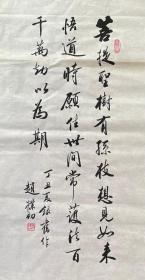 菩提聖樹有孫枝想見如来
悟道時願住世間常護法百
千萬劫以為期
丁丑夏
趙樸初